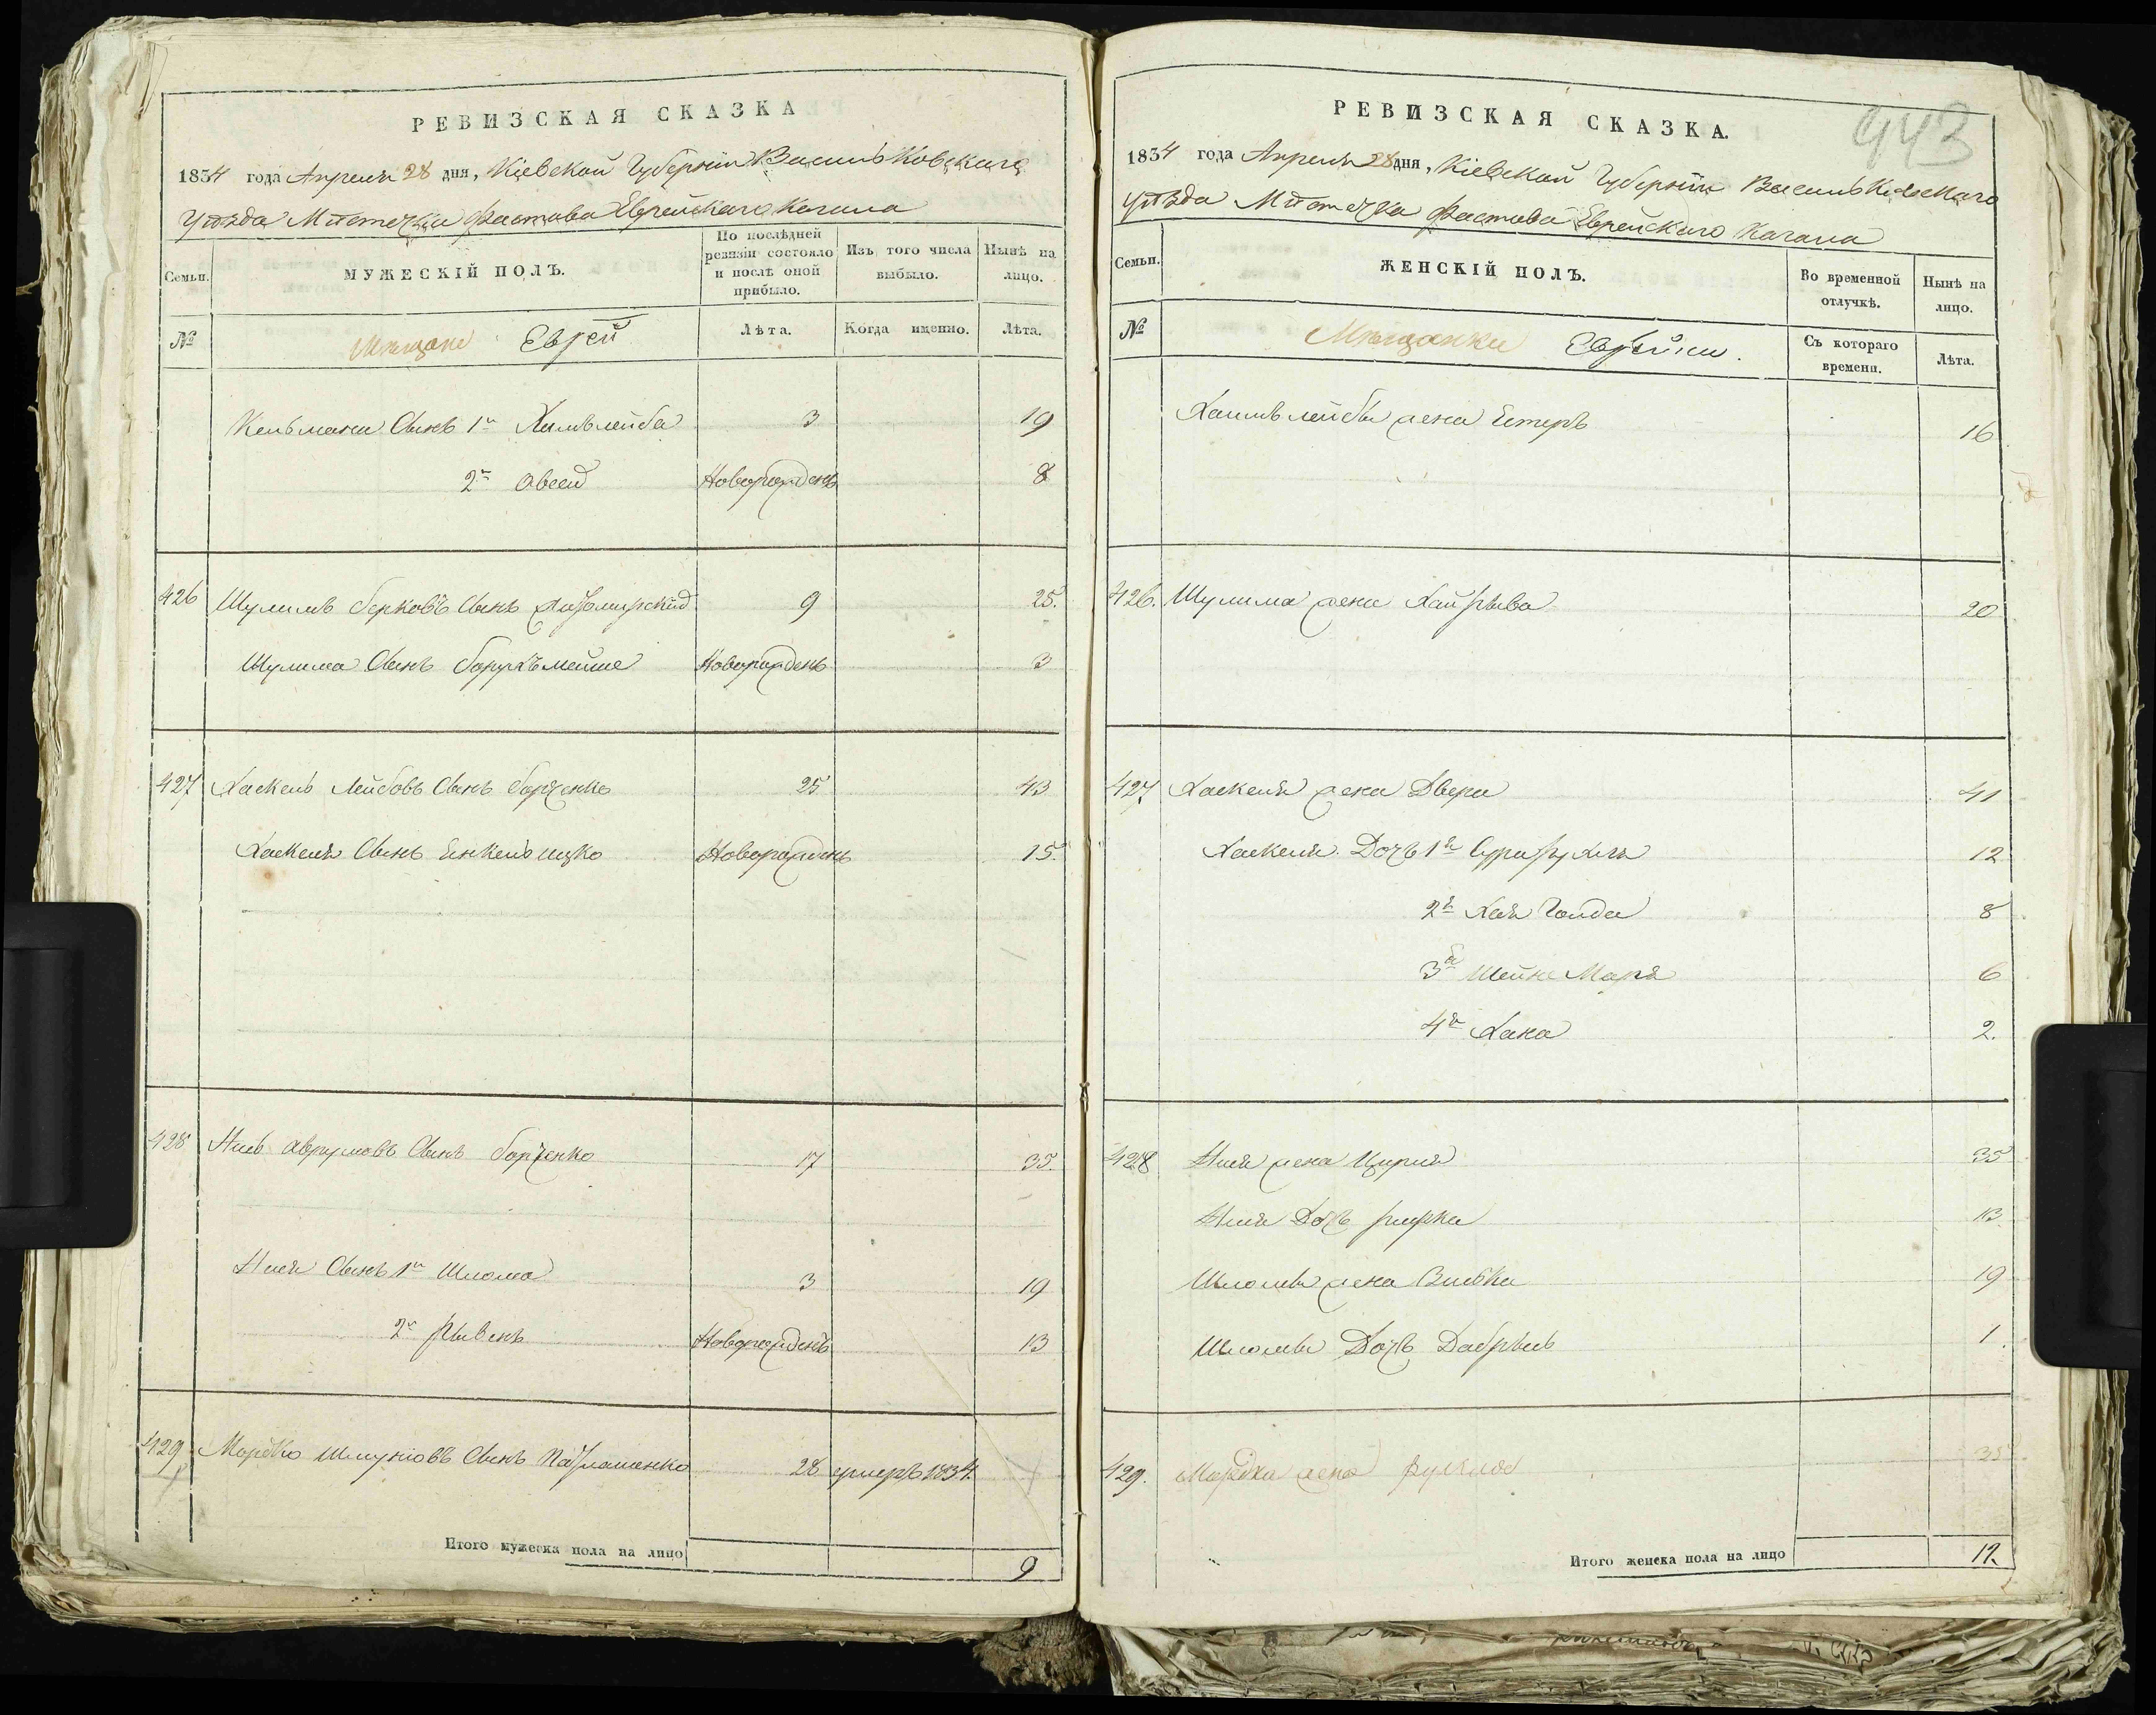 РЕВИЗСКАЯ СКАЗКА
1834 года Апреля 28 дня, Кіевской Губерніи Васильковскаго
Уѣзда Мѣстечка Фастова Еврейскаго Кагала
Семьи.
МУЖЕСКІЙ ПОЛЪ.
По послѣдней ревизіи состояло и послѣ оной прибыло.
Изъ того числа выбыло.
Нынѣ на лицо.
№
Мѣщане Евреи
Лѣта.
Когда именно.
Лѣта.
Кельмана Сынъ 1й Хаимълейба 3 19
2й Овсей Новорожденъ 8
426 Шулимъ Берковъ Сынъ 9 25.
Шулима Сынъ Борухъ мейше Новорожденъ 3
427 Хаскель Лейбовъ Сынъ Борченко 25 43
Хаскеля Сынъ Енкель ицко Новорожденъ 15.
428 Аврумовъ Сынъ Борченко 17 35.
Сынъ 1й Шлома 3 19
2й Рывенъ Новорожденъ 13
429 Мордко Шмуніовъ Сынъ 28 умеръ 1834.
Итого мужеска пола на лицо 9
943
РЕВИЗСКАЯ СКАЗКА.
1834 года Апреля 28 дня, Кіевской Губерніи Васильковскаго
Уѣзда Мѣстечка Фастова Еврейскаго Кагала
Семьи.
ЖЕНСКІЙ ПОЛЪ.
Во временной отлучкѣ.
Нынѣ на лицо.
№
Мѣщанки Еврейки.
Съ котораго времени.
Лѣта.
Хаимълейбы жена Естеръ 16
426. Шулима жена Хая рыва 20
427 Хаскеля жена Двера 41
Хаскеля Дочь 1я Сура рухля 12
2я Хая Голда 8
3я Шейне Маря 6
4я Хана 2.
428 жена Цирля 35
Дочь рифка 13
Шломы жена Вибка 19
Шломы Дочь Добрышъ 1.
429. Мордка жена 35
Итого женска пола на лицо 11.